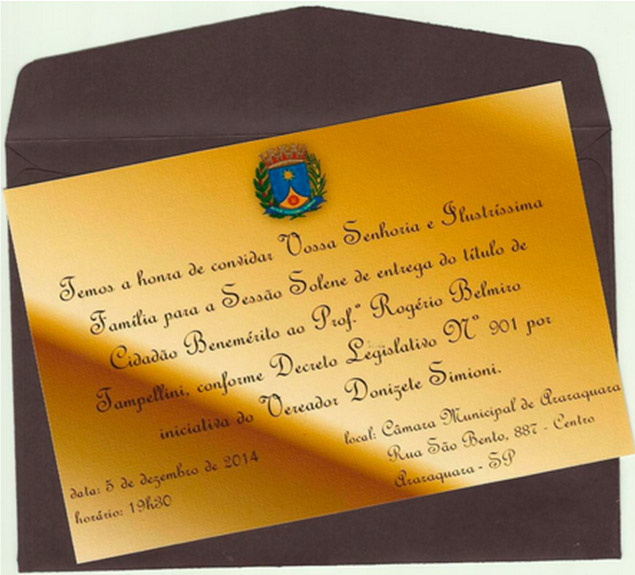 Temos a honra de convidar Vossa Senhoria e Ilustríssima
Família para a Sessão Solene de entrega do título de
Cidadão Benemérito ao Prof.º Rogério Belmiro
Tampellini, conforme Decreto Legislativo Nº 901 por
iniciativa do Vereador Donizete Simioni.
data: 5 de dezembro de 2014
horário: 19h30
local: Câmara Municipal de Araraquara
Rua São Bento, 887 - Centro
Araraquara - SP